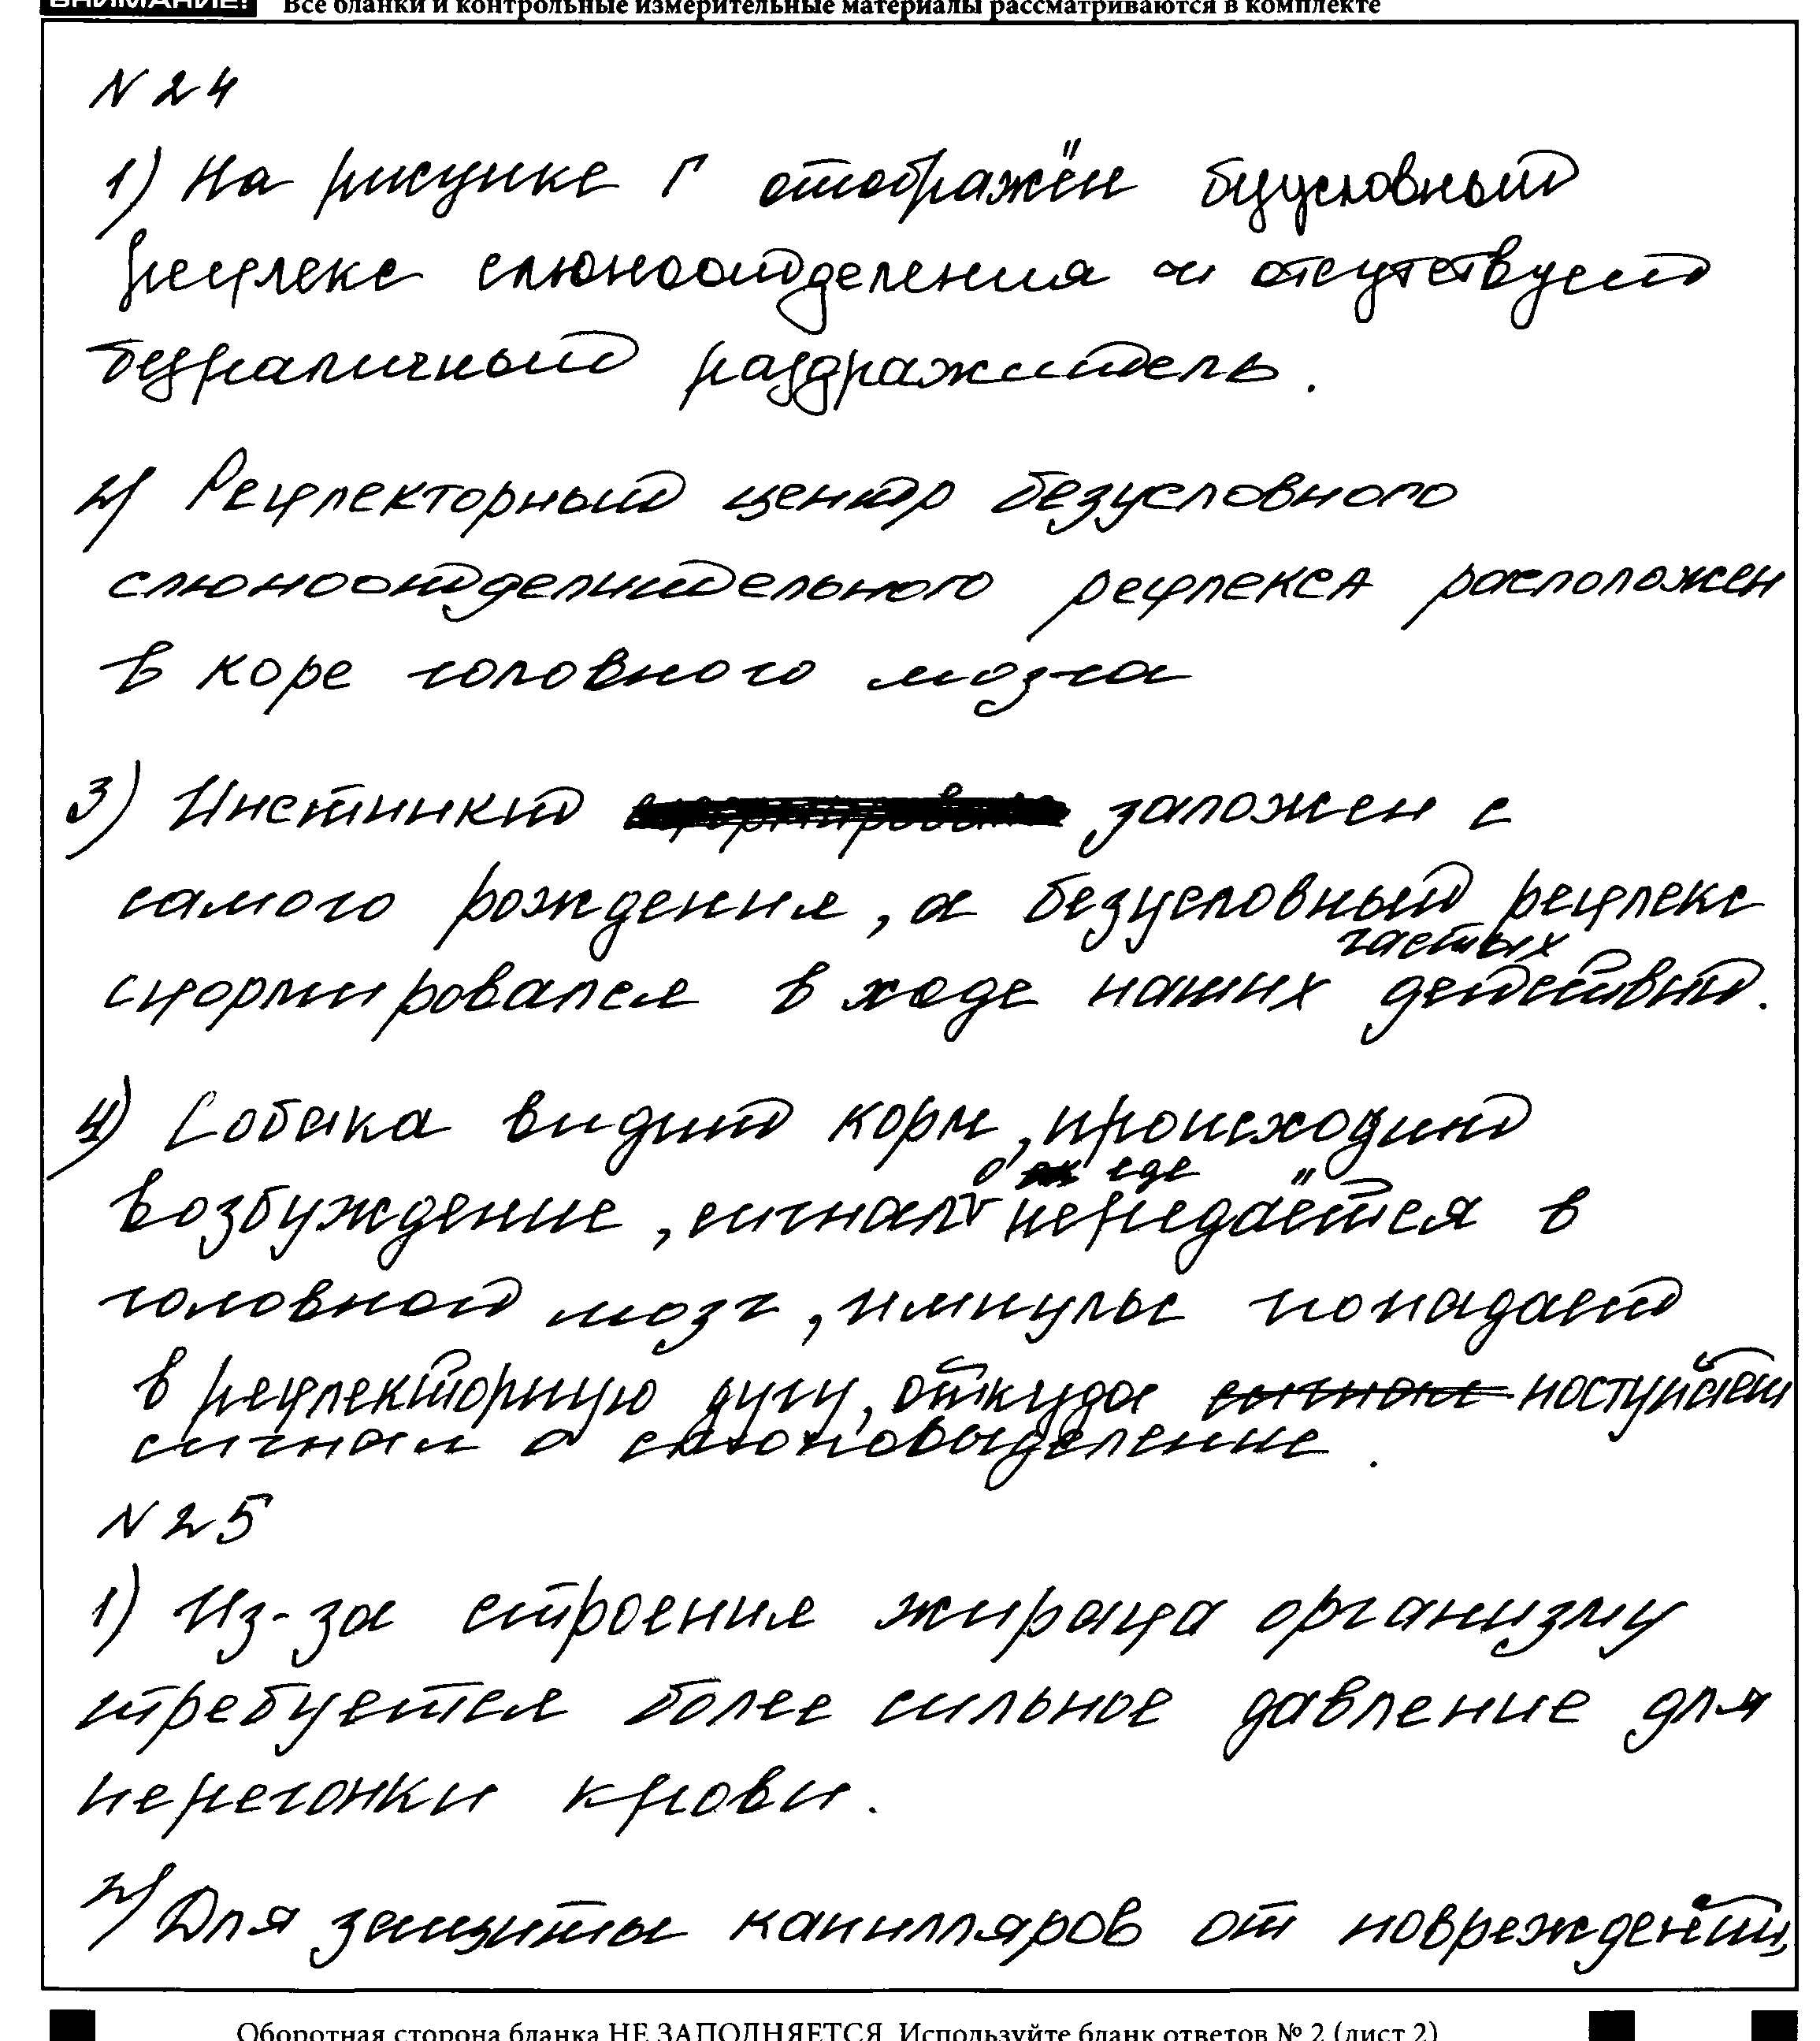 ВНИМАНИЕ! Все бланки и контрольные измерительные материалы рассматриваются в комплекте
N 24
1) На рисунке Г отображён безусловный
рефлекс слюноотделения и отсутствует
безразличный раздражитель.
2) Рефлекторный центр безусловного
слюноотделительного рефлекса расположен
в коре головного мозга
3) Инстинкт заложен с
самого рождения, а безусловный рефлекс
частых
сформировался в ходе наших действий.
4) Собака видит корм, происходит
о еде
возбуждение, сигнал передаётся в
головной мозг, импульс попадает
в рефлекторную дугу, откуда сигнал поступает
сигнал о слюновыделение.
N 25
1) Из-за строения жирафа организму
требуется более сильное давление для
перегонки крови.
2) Для защиты капилляров от повреждений,
Оборотная сторона бланка НЕ ЗАПОЛНЯЕТСЯ. Используйте бланк ответов № 2 (лист 2)